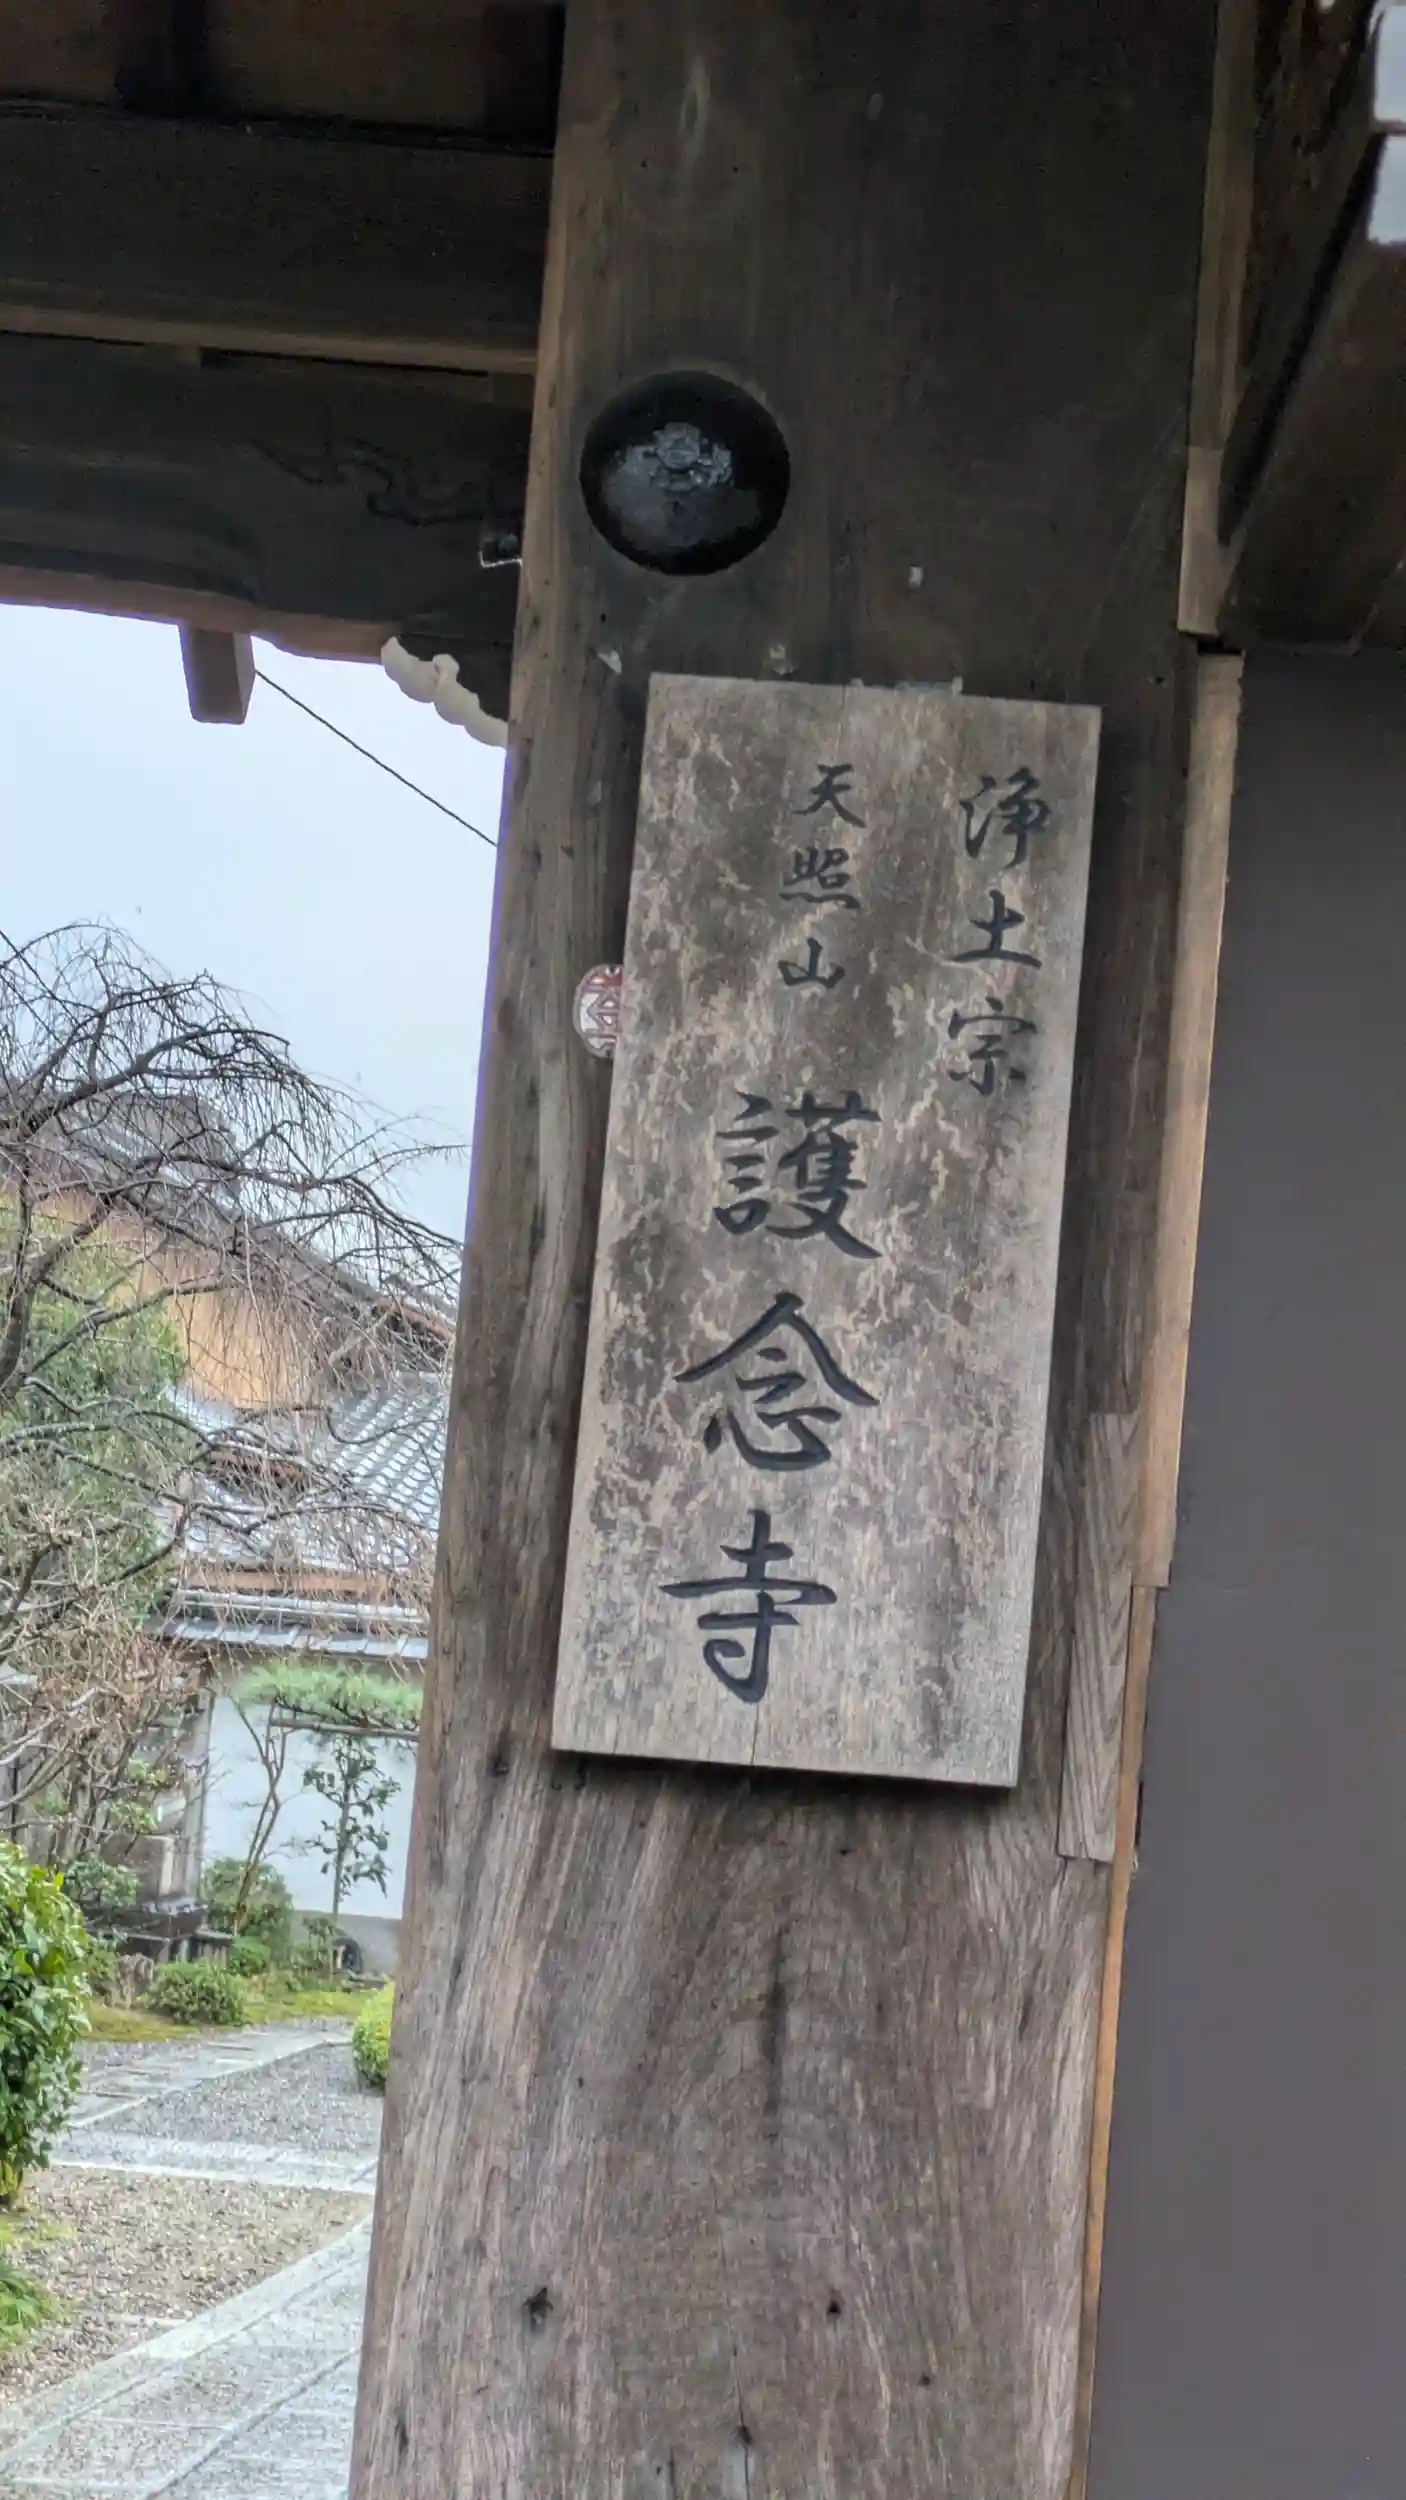 浄土宗
天照山 護念寺